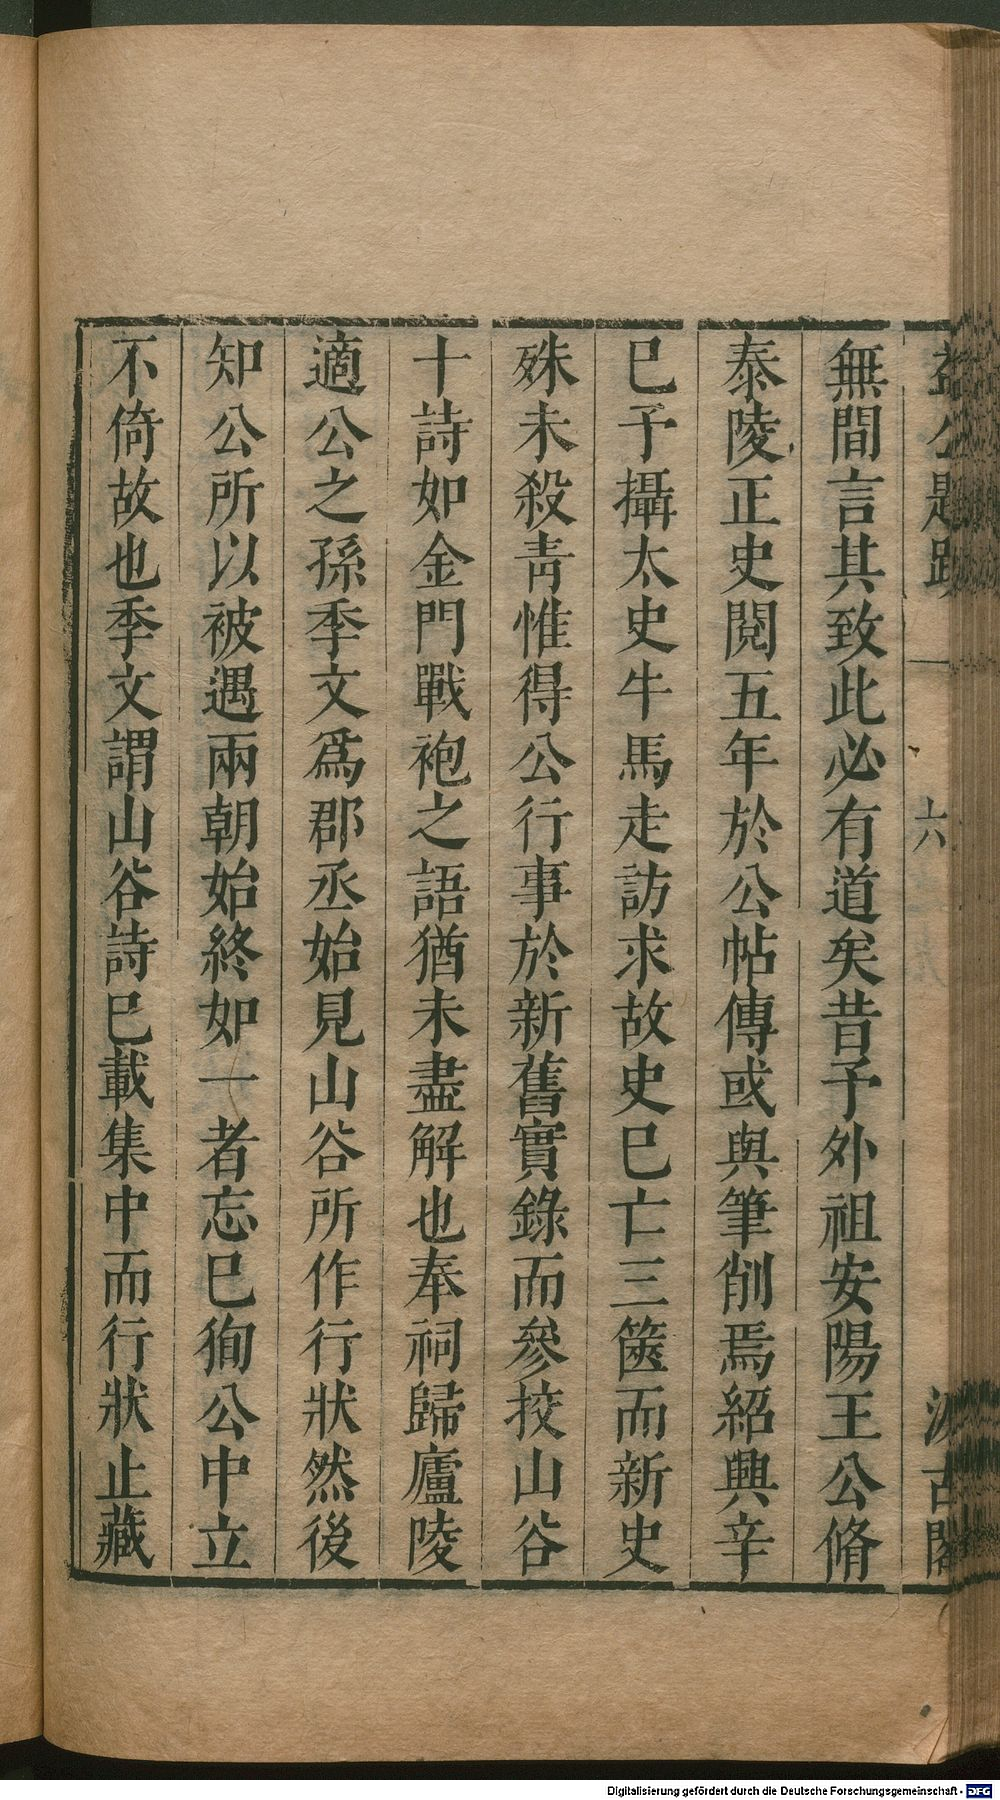 益公題跋 一 六 汲古閣
無間言其致此必有道矣昔予外祖安陽王公脩
泰陵正史閱五年於公帖傳或與筆削焉紹興辛
巳予攝太史牛馬走訪求故史巳亡三篋而新史
殊未殺靑惟得公行事於新舊實錄而參挍山谷
十詩如金門戰袍之語猶未盡解也奉祠歸廬陵
適公之孫季文爲郡丞始見山谷所作行狀然後
知公所以被遇兩朝始終如一者忘巳徇公中立
不倚故也季文謂山谷詩巳載集中而行狀止藏
Digitalisierung gefördert durch die Deutsche Forschungsgemeinschaft - DFG